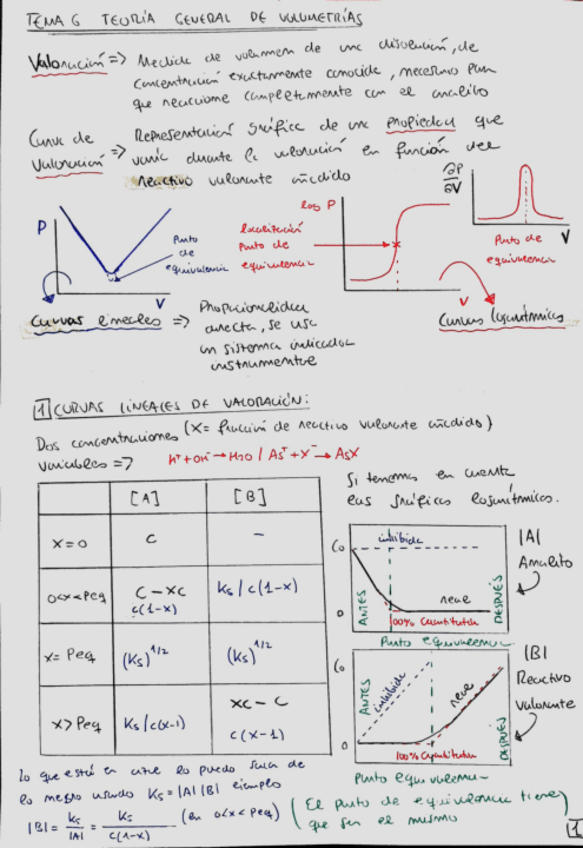 TEMA 6 TEORÍA GENERAL DE VOLUMETRÍAS
Valoración => Medida de volumen de una disolución, de
concentración exactamente conocida, necesario para
que reaccione completamente con el analito
Curva de
Valoración => Representación gráfica de una propiedad que
varía durante la valoración en función del
reactivo valorante añadido
P
Punto
de
equivalencia
V
log P
localización
Punto de
equivalencia
V
∂P
∂V
V
Punto de
equivalencia
Curvas lineales => Proporcionalidad
directa, se usa
un sistema indicador
instrumental
Curvas logarítmicas
1 CURVAS LINEALES DE VALORACIÓN:
Dos concentraciones (X= fracción de reactivo valorante añadido)
variables => H⁺+OH⁻→H2O / As⁺+X⁻→AsX
[A] [B]
X=0 C –
0<x<Peq C-XC Ks/c(1-x)
c(1-x)
X= Peq (Ks)^1/2 (Ks)^1/2
X>Peq Ks/c(x-1) XC-C
C(X-1)
Si tenemos en cuenta
las gráficas logarítmicas.
Co
inhibida
ANTES
neue
DESPUÉS
0
100% Cuantitativa
Punto equivalencia
|A|
Analito
Co
ANTES
inhibida
neue
DESPUÉS
0
100% Cuantitativa
Punto equivalencia
|B|
Reactivo
Valorante
lo que está en azul lo puedo sacar de
lo negro usando Ks=|A||B| ejemplo
|B| = Ks/|A| = Ks/C(1-x) (en 0<x<Peq)
(El punto de equivalencia tiene)
que ser el mismo
1